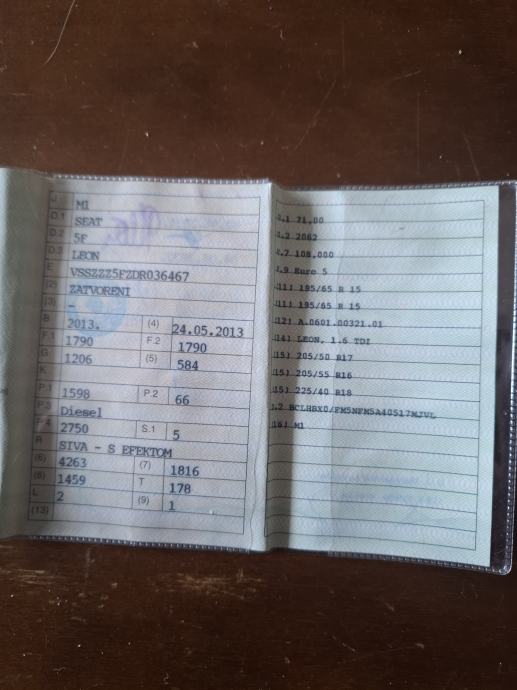 J M1
D.1 SEAT
D.2 5F
D.3 LEON
E VSSZZZ5FZDR036467
(2) ZATVORENI
(3) -
B 2013. (4) 24.05.2013
F.1 1790 F.2 1790
G 1206 (5) 584
K
P.1 1598 P.2 66
P.3 Diesel
P.4 2750 S.1 5
R SIVA - S EFEKTOM
(6) 4263 (7) 1816
(8) 1459 T 178
L 2 (9) 1
(13)
.1 71,00
.2 2062
.7 108.000
.9 Euro 5
11) 195/65 R 15
11) 195/65 R 15
12) A.0601.00321.01
14) LEON, 1.6 TDI
15) 205/50 R17
15) 205/55 R16
15) 225/40 R18
.2 BCLHBX0/FM5NFM5A40517MJVL
16) M1